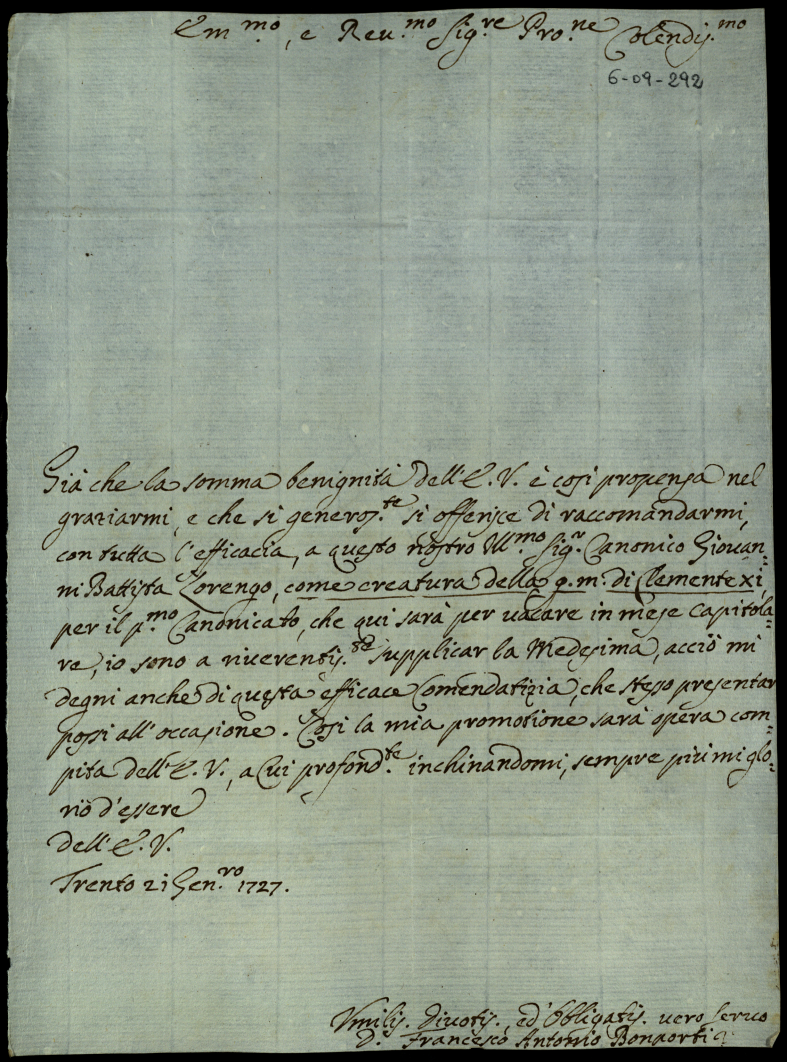 Em.mo, e Reu.mo Sig.re Pro.ne Colendis.mo
6-09-292
Già che la somma benignità dell'E. V. è così propensa nel
graziarmi, e che si generos.te si offerisce di raccomandarmi,
con tutta l'efficacia, a questo nostro Ill.mo Sig.r Canonico Giouan=
ni Battista Zorengo, come creatura della g. m. di Clemente XI,
per il p.mo Canonicato, che qui sarà per uacare in mese capitola=
re, io sono a riuerentis.te supplicar la Medesima, acciò mi
degni anche di questa efficace Comendatizia, che stesso presentar
possi all'occasione. Così la mia promotione sarà opera com=
pita dell'E. V., a Cui profond.te inchinandomi, sempre più mi glo=
riò d'essere
dell'E. V.
Trento 21 Gen.ro 1727.
Vmilis. Diuotis., ed' Obbligatis. uero seruo
D. Francesco Antonio Bonporti